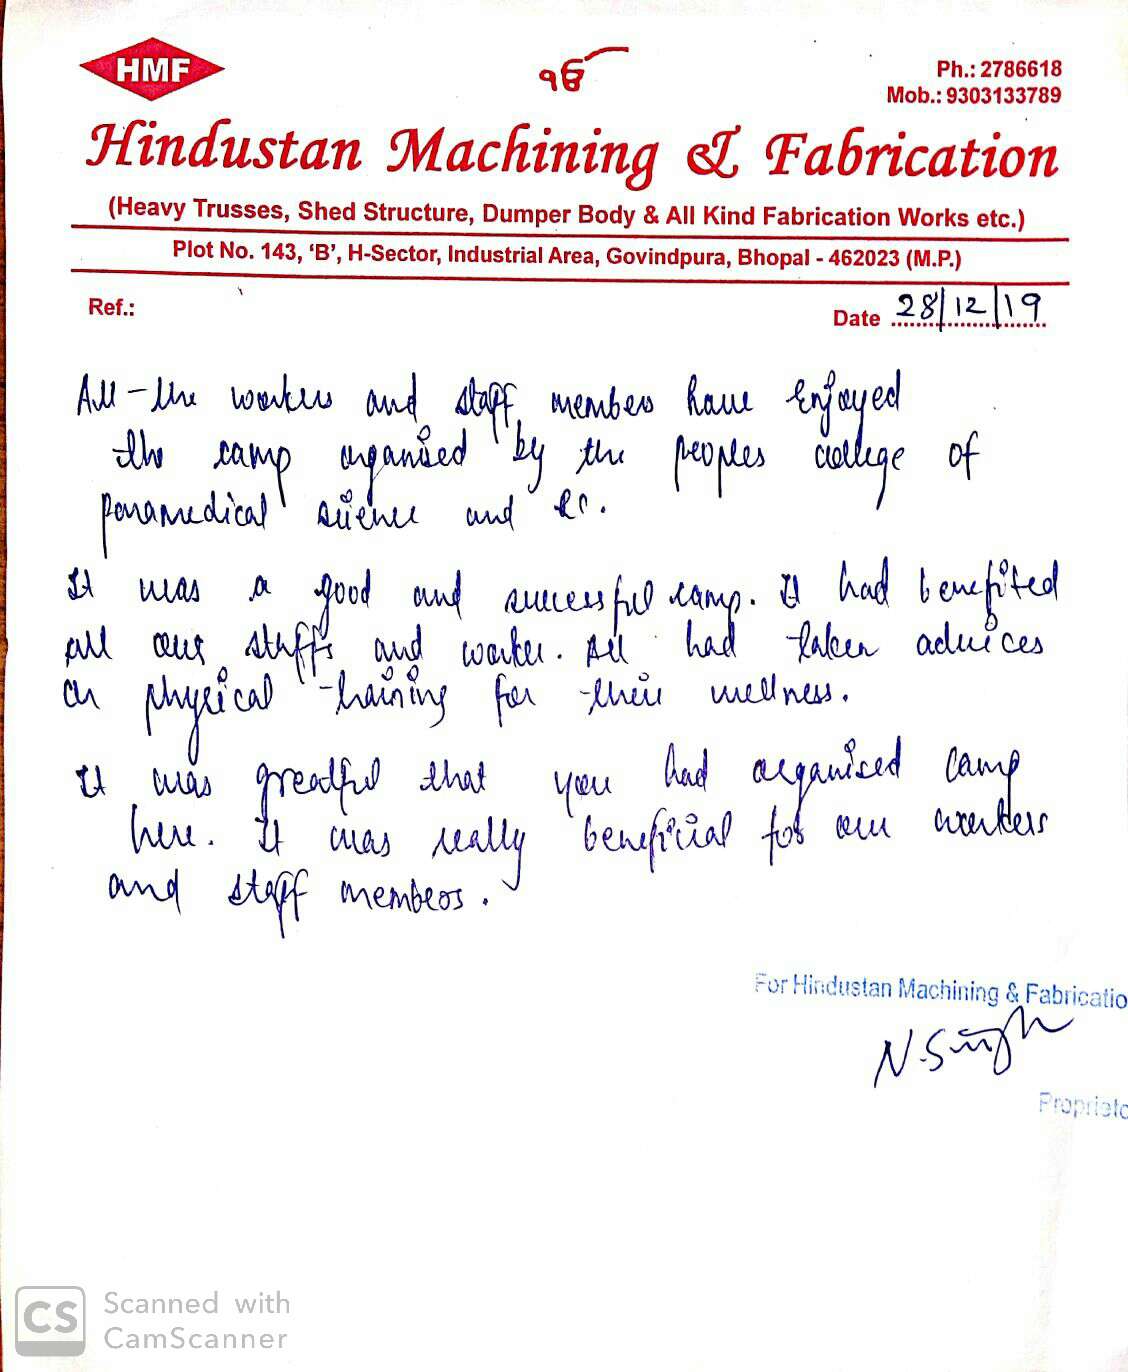 HMF
ੴ
Ph.: 2786618
Mob.: 9303133789
Hindustan Machining & Fabrication
(Heavy Trusses, Shed Structure, Dumper Body & All Kind Fabrication Works etc.)
Plot No. 143, ‘B’, H-Sector, Industrial Area, Govindpura, Bhopal - 462023 (M.P.)
Ref.:
Date 28/12/19
All the workers and staff members have Enjoyed
the camp organised by the peoples college of
paramedical science and
It was a good and successful camp. It had benefited
all our staffs and worker. All had taken advices
on physical training for their wellness.
It was greatful that you had organised camp
here. It was really beneficial for our workers
and staff members.
For Hindustan Machining & Fabricatio
N. Singh
Proprieto
CS
Scanned with
CamScanner